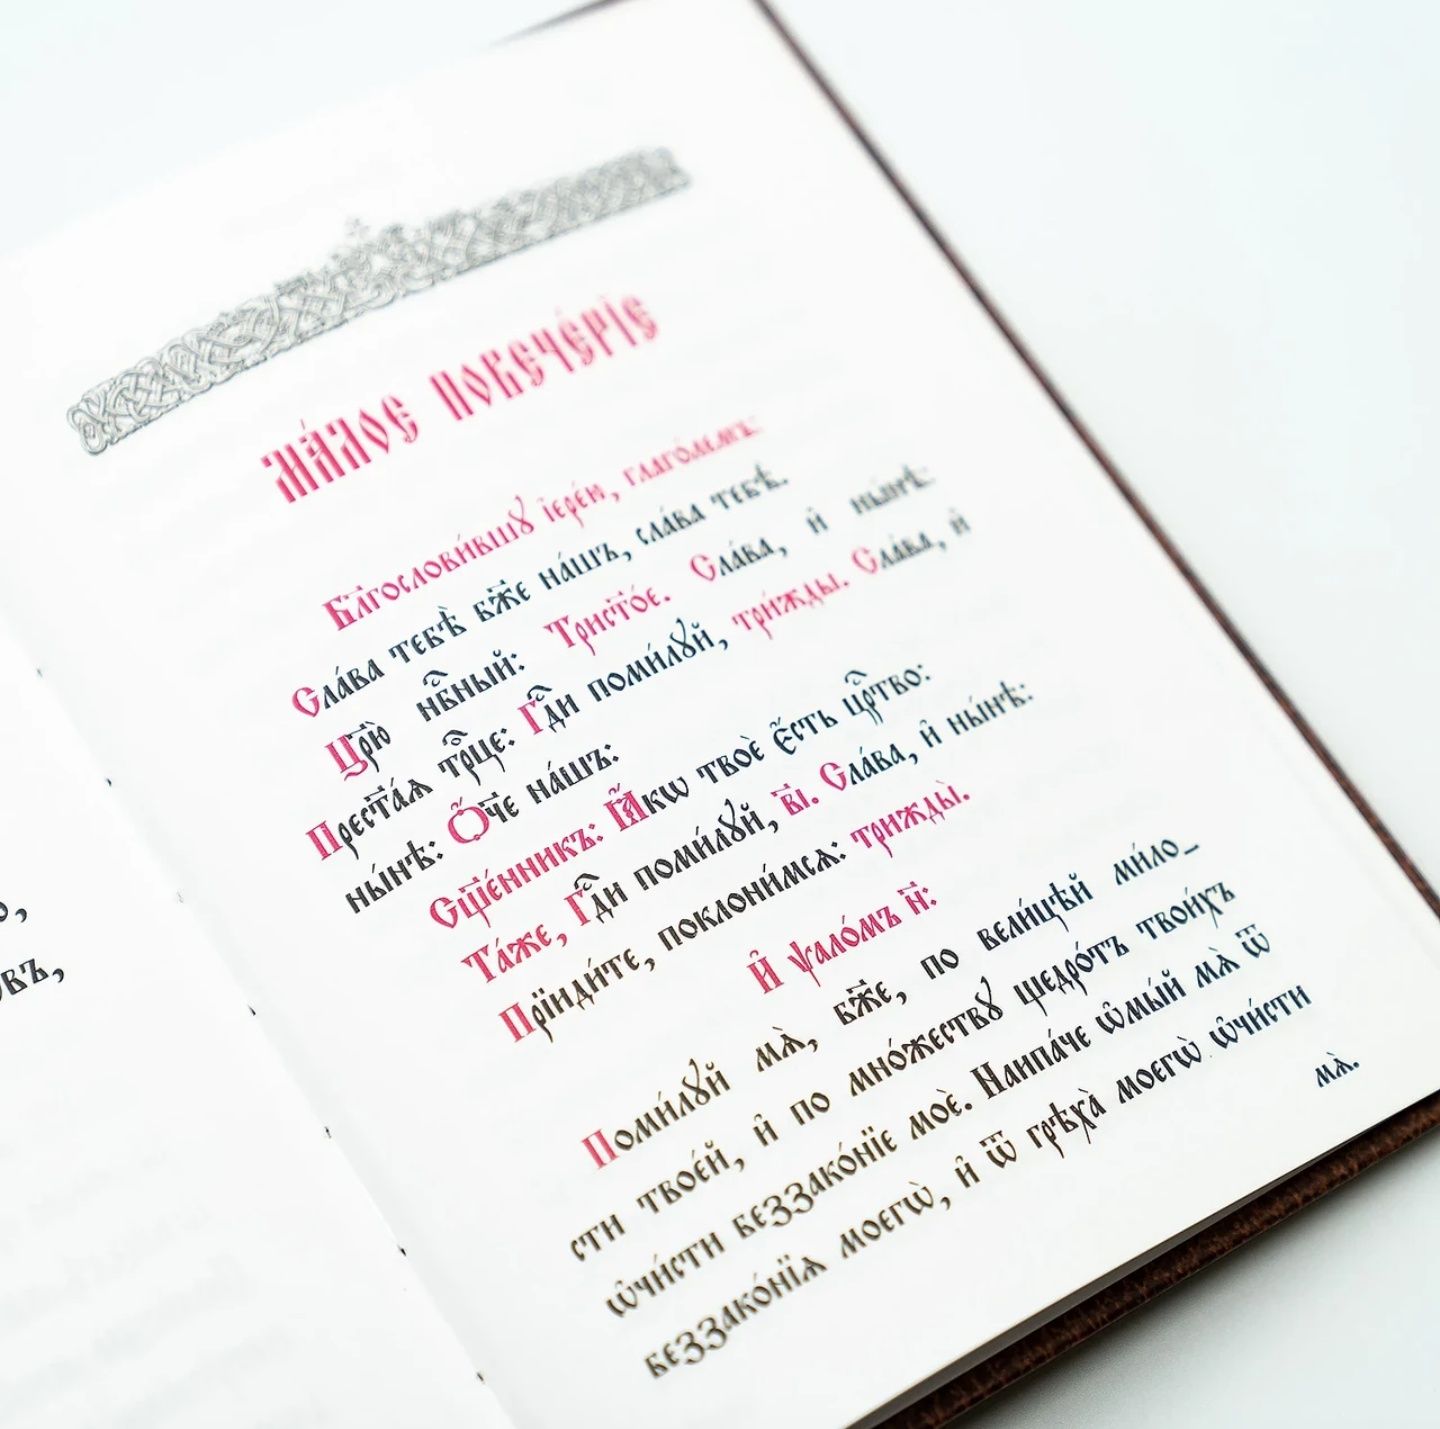 о,
овъ,
Ма́лое повече́рїе
Бл҃гослови́вшꙋ і҆ере́ю, глаго́лемъ:
Сла́ва тебѣ̀ бж҃е на́шъ, сла́ва тебѣ̀.
Цр҃ю̀ нбⷭ҇ный: Трист҃о́е. Сла́ва, и҆ ны́нѣ:
Прест҃а́ѧ трⷪ҇це: Гдⷭ҇и поми́лꙋй, три́жды. Сла́ва, и҆
ны́нѣ: Ѻ҆́ч҃е на́шъ:
Сщ҃е́нникъ: Ꙗ҆́кѡ твоѐ є҆́сть црⷭ҇тво:
Та́же, Гдⷭ҇и поми́лꙋй, в҃і. Сла́ва, и҆ ны́нѣ:
Прїиди́те, поклони́мсѧ: трижды̀.
И҆ ѱало́мъ н҃:
Поми́лꙋй мѧ̀, бж҃е, по вели́цѣй ми́ло-
сти твое́й, и҆ по мно́жествꙋ щедро́тъ твои́хъ
ѡ҆чи́сти беззако́нїе моѐ. Наипа́че ѡ҆мы́й мѧ̀ ѿ
беззако́нїѧ моегѡ̀, и҆ ѿ грѣха̀ моегѡ̀ ѡ҆чи́сти
мѧ̀.